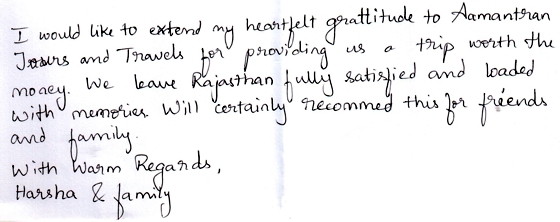 I would like to extend my heartfelt grattitude to Aamantran
Tours and Travels for providing us a trip worth the
money. We leave Rajasthan fully satisfied and loaded
with memories. Will certainly recommed this for friends
and family.
With Warm Regards,
Harsha & family